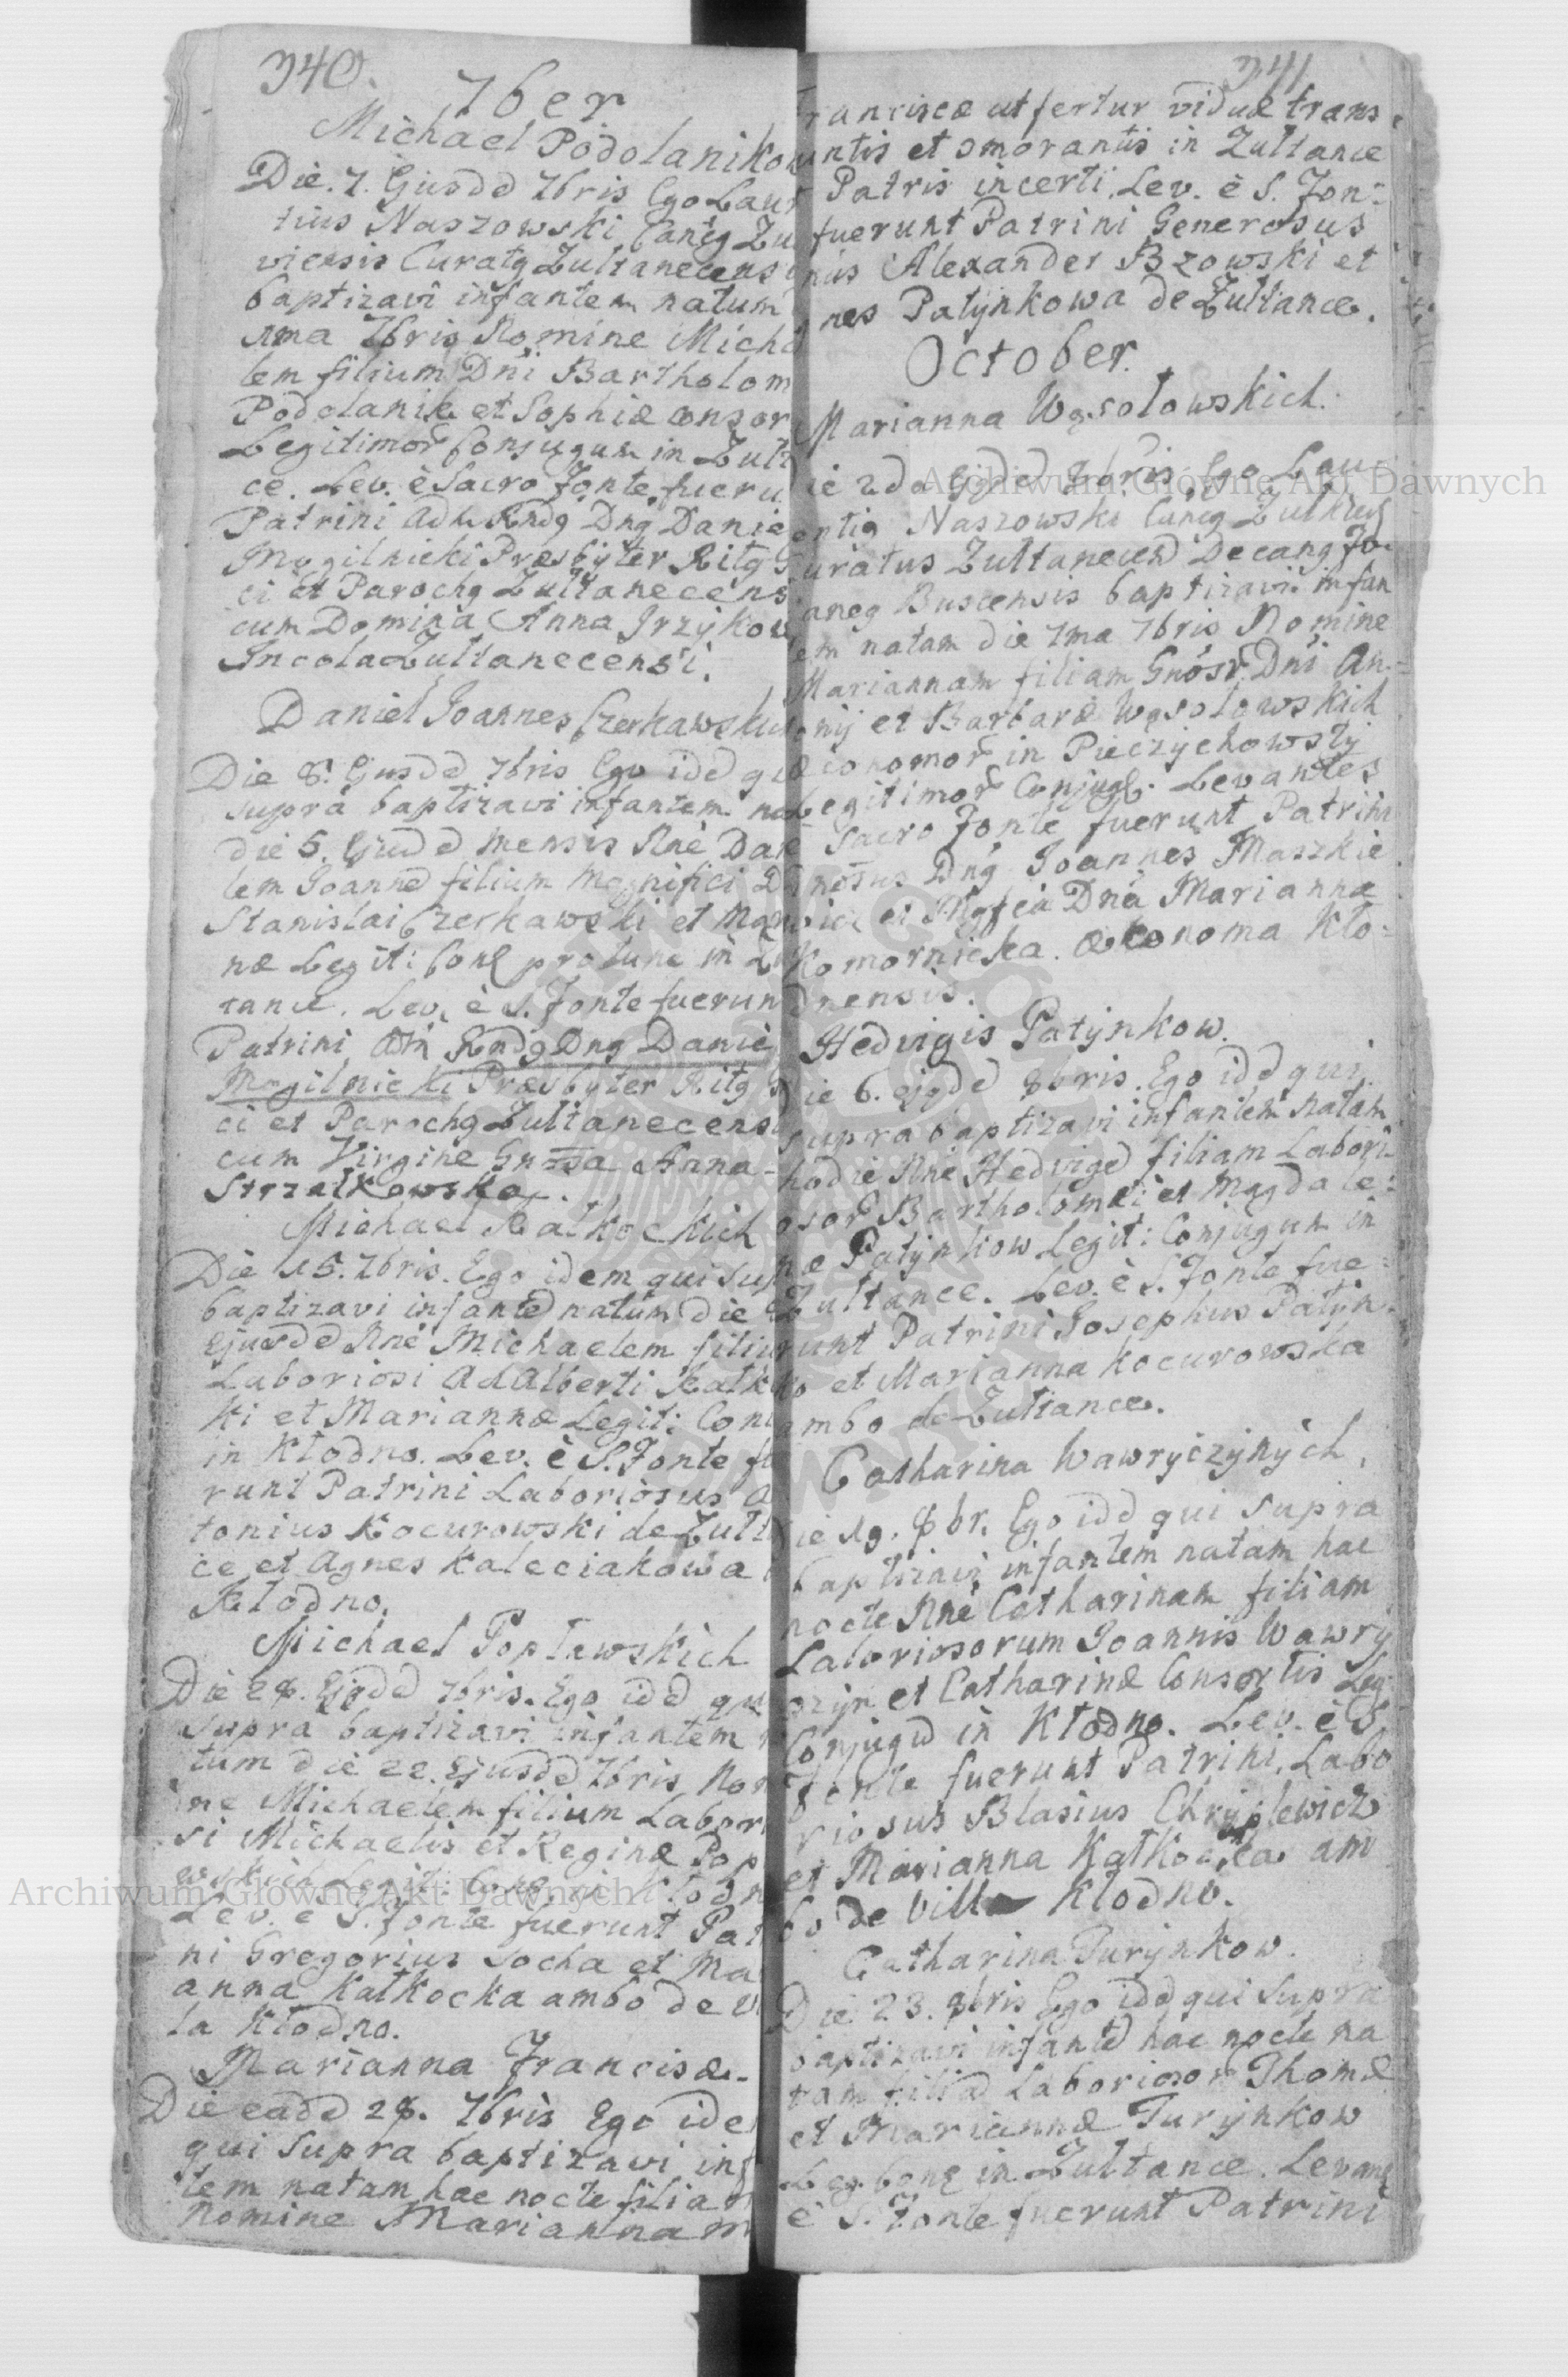 340.
7ber
Michael Podolanikow
Die. 7. Ejusdd 7bris Ego Laur
tius Naszowski Cantg Zu
viensis Curatg Zultanecens
baptizavi infantem natum
1ma 7bris Nomine Micha
lem filium Dni Bartholom
Podolanik et Sophiæ consor
Legitimor Conjugum in Zult
ce. Lev. è Sacro Fonte fueru
Patrini Adm Rndg Dng Danie
Mogilnicki Præsbyter Ritg G
ci et Parochg Zultanecens
cum Domina Anna Jrzykow
Incola Zultanecensi.
Daniel Joannes Czerkawski
Die 8. Ejusdd 7bris Ego idd qui
supra baptizavi infantem na
die 5. Ejusdd mensis Nne Dan
lem Joannd filium Magnifici D
Stanislai Czerkawski et Mar
næ Legit: Cong protunc in Zu
tance. Lev. è S. Fonte fuerun
Patrini Adm Rndg Dng Danie
Mogilnicki Præsbyter Ritg G
ci et Parochg Zultanecens
cum Virgine Gnosa Anna
Strzałkowska.
Michael Kałkockich
Die 15. 7bris. Ego idem qui sup
baptizavi infantd natum die
Ejusdd Nne Michaelem filiu
Laboriosi Adalberti Kałko
ki et Mariannæ Legit: Coni
in Kłodno. Lev. è S. Fonte fu
runt Patrini Laboriosus A
tonius Kocurowski de Zult
ce et Agnes Kaleciakowa
Kłodno.
Michael Popławskich
Die 28. Ejgdd 7bris. Ego idd qu
supra baptizavi infantem n
tum die 22. Ejusdd 7bris Nom
ine Michaelem filium Labori
si Michaelis et Reginæ Pop
wskich Legit: Cong. in Kłodn
Lev. e S. Fonte fuerunt Pat
ni Gregorius Socha et Ma
anna Kałkocka ambo de vi
la Kłodno.
Marianna Francisæ.
Die eadd 28. 7bris Ego ide
qui supra baptizavi inf
tem natam hac nocte filiam
Nomine Mariannam
341
ranciscæ ut fertur viduæ trans
untis et omorantis in Zultance
Patris incerti. Lev. è S. Fon-
fuerunt Patrini Generosus
nus Alexander Bzowski et
nes Patynkowa de Zultance.
October.
Marianna Wąsołowskich.
ie 2da Ejgdd 8bris. Ego Lau-
entig Naszowski Cancg Zulkiev
uratus Zultanecen Decang Fo
aneg Buscensis baptizavi infan
em natam die 7ma 7bris Nomine
Mariannam filiam Gnosr Dni An-
nij et Barbaræ Wąsołowskich
conomor in Pieczychowsty
Legitimor Conjug. Levantes
Sacro Fonte fuerunt Patrini
nosus Dng Joannes Maszkie
wicz et Mgfca Dna Marianna
Komornicka. œkonoma Kło-
dnensis.
Hedvigis Patynkow.
ie 6. ejgdd 8bris. Ego idd qui
supra baptizavi infantem natam
hodie Nne Hedvigd filiam Labori-
osor Bartholomæi et Magdale-
næ Patynkow Legit: Conjugum in
Zultance. Lev. è S. Fonte fue-
runt Patrini Josephus Patyn-
ko et Marianna Kocurowska
ambo de Zultance.
Catharina Wawryczynych.
ie 19. 8br. Ego idd qui supra
baptizavi infantem natam hac
nocte Nne Catharinam filiam
Laboriosorum Joannis Wawry
czyn et Catharinæ Consortis Leg
Conjugd in Kłodno. Lev. è S.
Fonte fuerunt Patrini, Labo
riosus Blasius Chryplewicz
et Marianna Kałkocka am
bo de villa Kłodno.
Catharina Turynkow.
Die 23. 8bris Ego idd qui supra
baptizavi infantd hac nocte na
tam filiad Laborioson Thomæ
et Mariannæ Turynkow
Leg. Cong in Zultance. Levang
è S. Fonte fuerunt Patrini
Archiwum Główne Akt Dawnych
Archiwum Główne Akt Dawnych